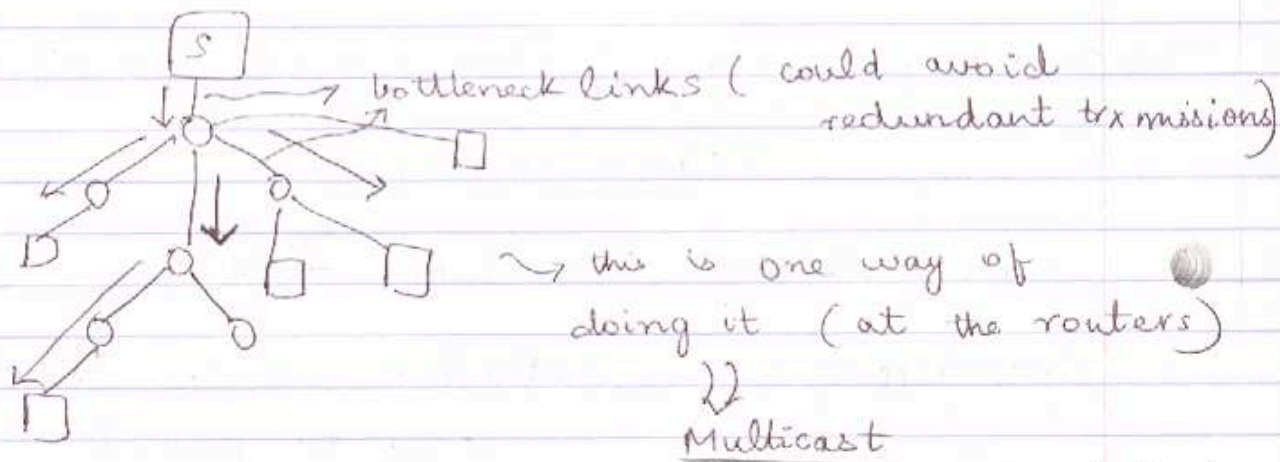 S
bottleneck links ( could avoid
redundant trxmissions)
this is one way of
doing it ( at the routers)
Multicast